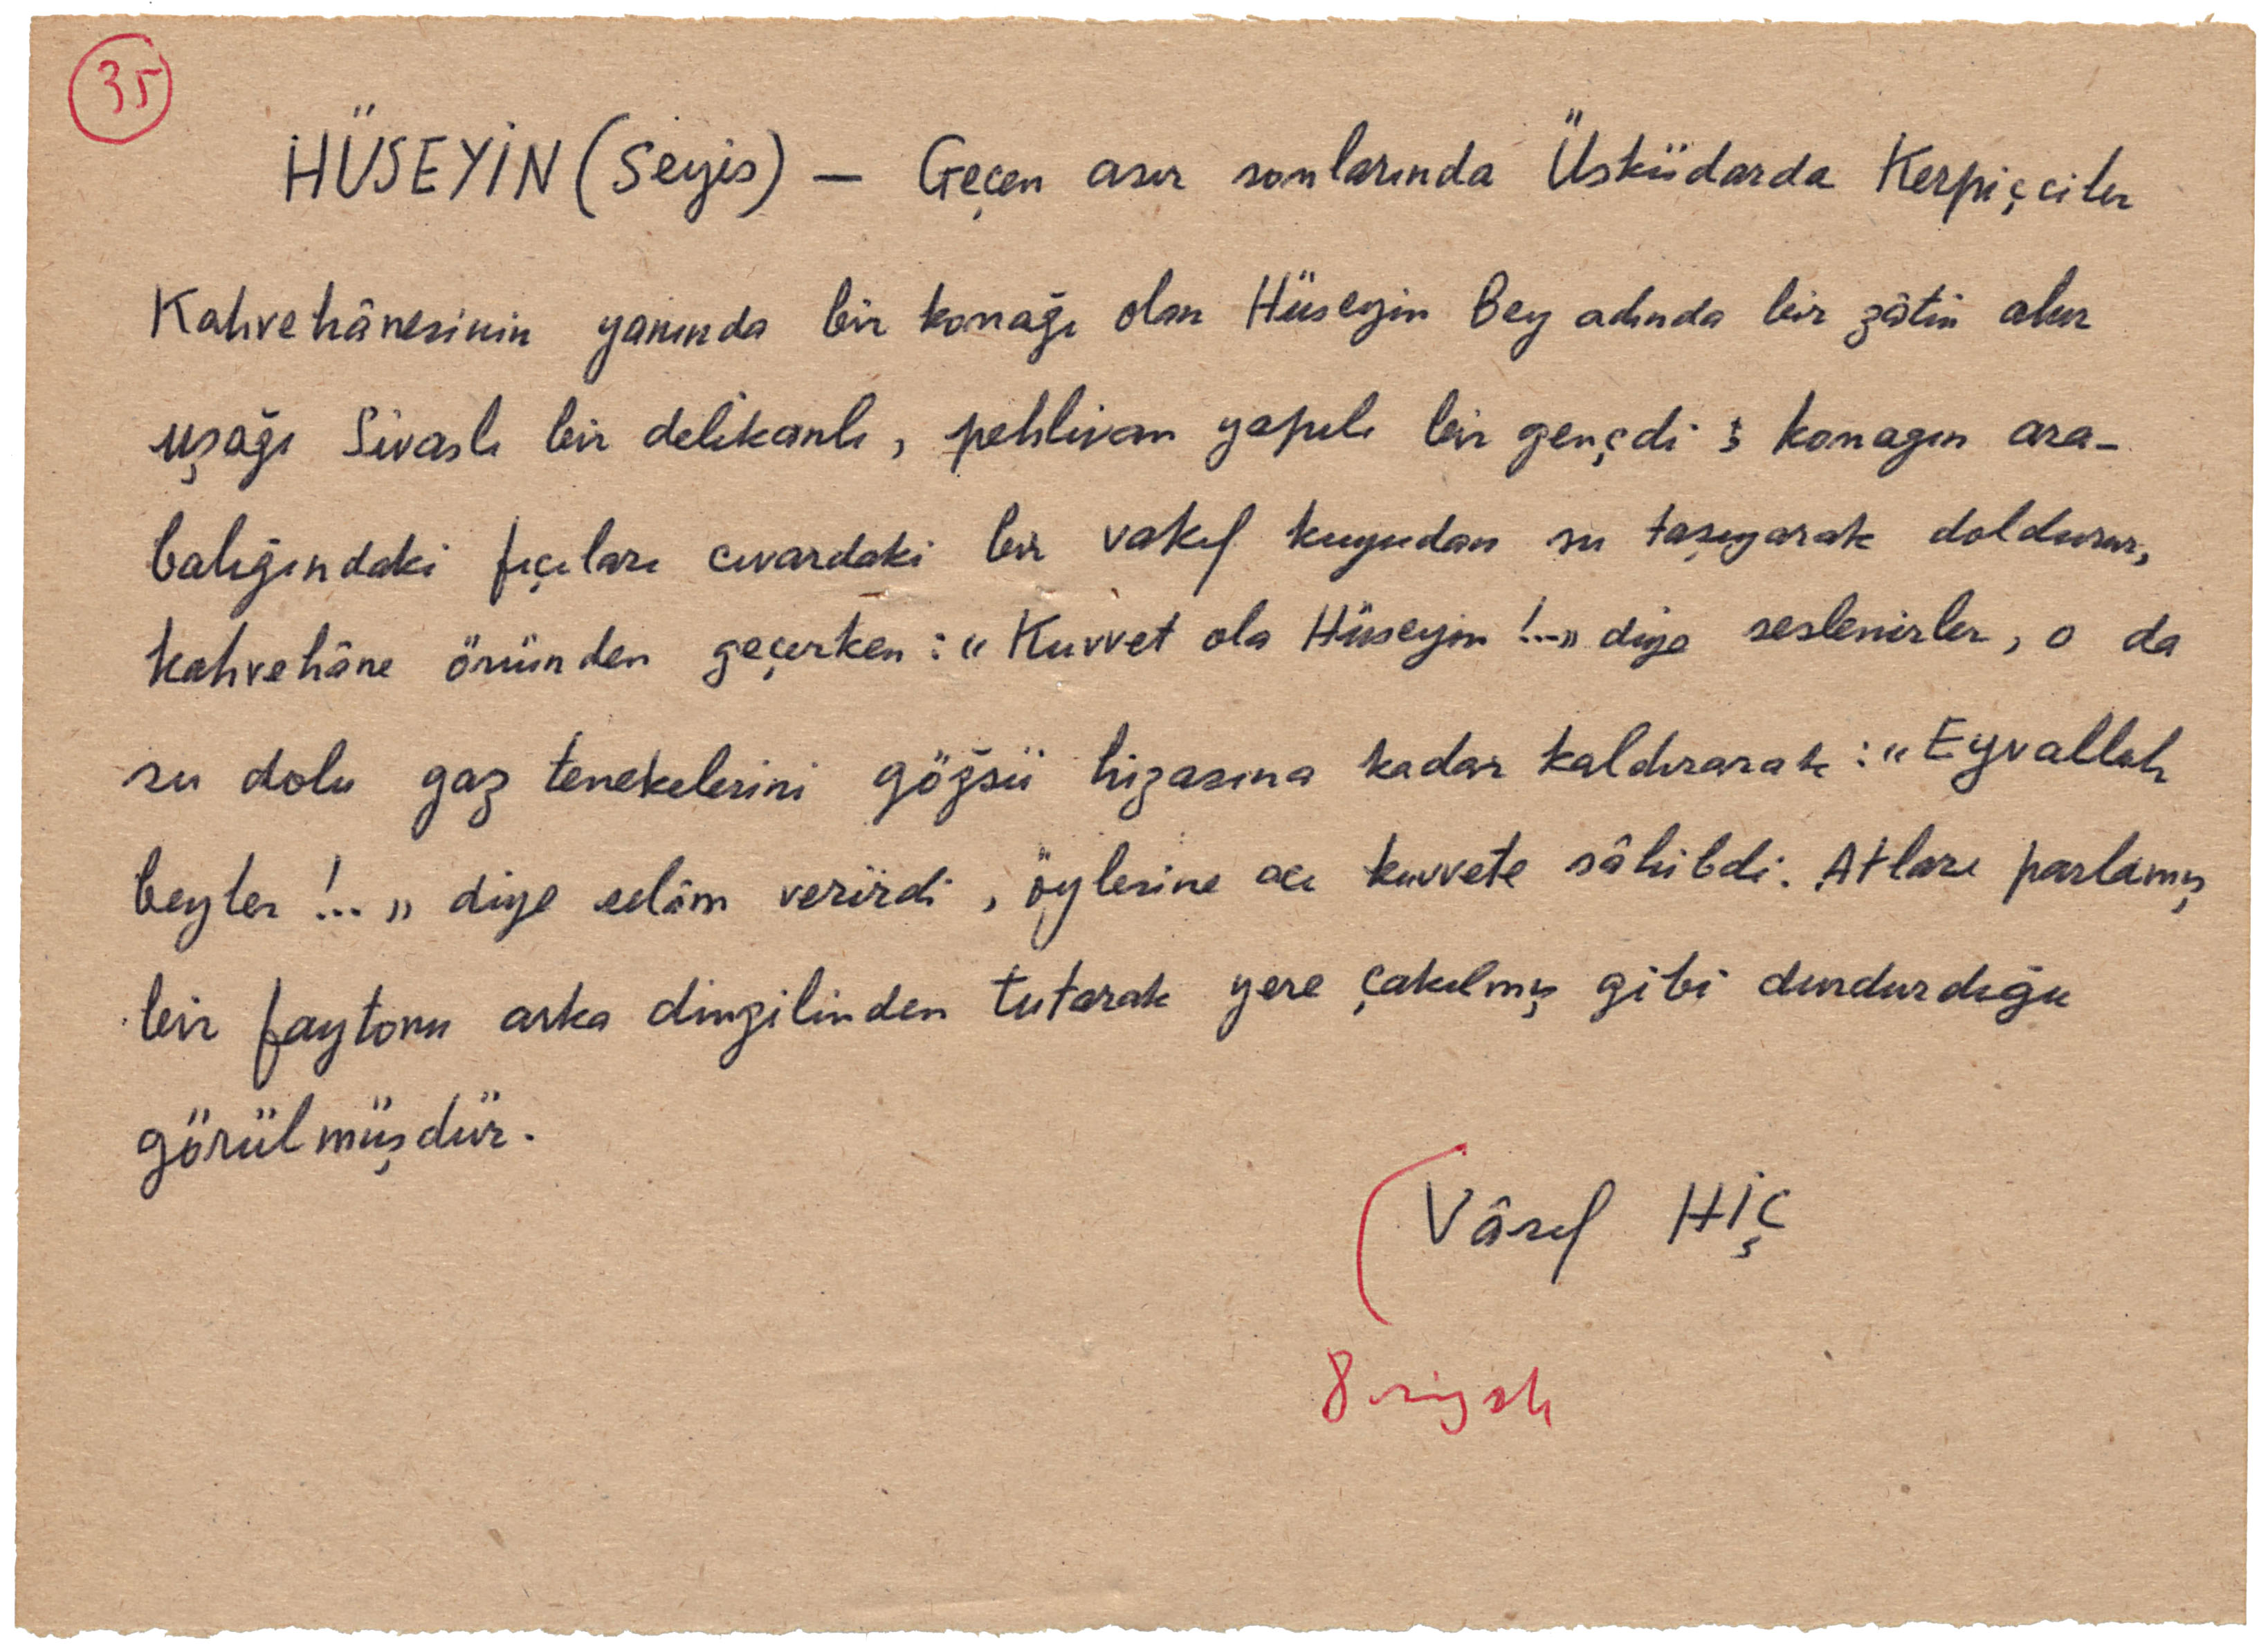 35
HÜSEYİN (Seyis) — Geçen asır sonlarında Üsküdarda Kerpiçciler
Kahvehânesinin yanında bir konağı olan Hüseyin Bey adında bir zâtin ahır
uşağı Sivaslı bir delikanlı, pehlivan yapılı bir gençdi ; konagın ara-
balığındaki fıçıları cıvardaki bir vakıf kuyudan su taşıyarak doldurur,
kahvehâne önünden geçerken : "Kuvvet ola Hüseyin !..." diye seslenirler, o da
su dolu gaz tenekelerini göğsü hizasına kadar kaldırarak : "Eyvallah
beyler !..." diye selâm verirdi, öylesine acı kuvvete sâhibdi. Atları parlamış
bir faytonu arka dingilinden tutarak yere çakılmış gibi durdurduğu
görülmüşdür.
Vâsıf HİÇ
8 siyah